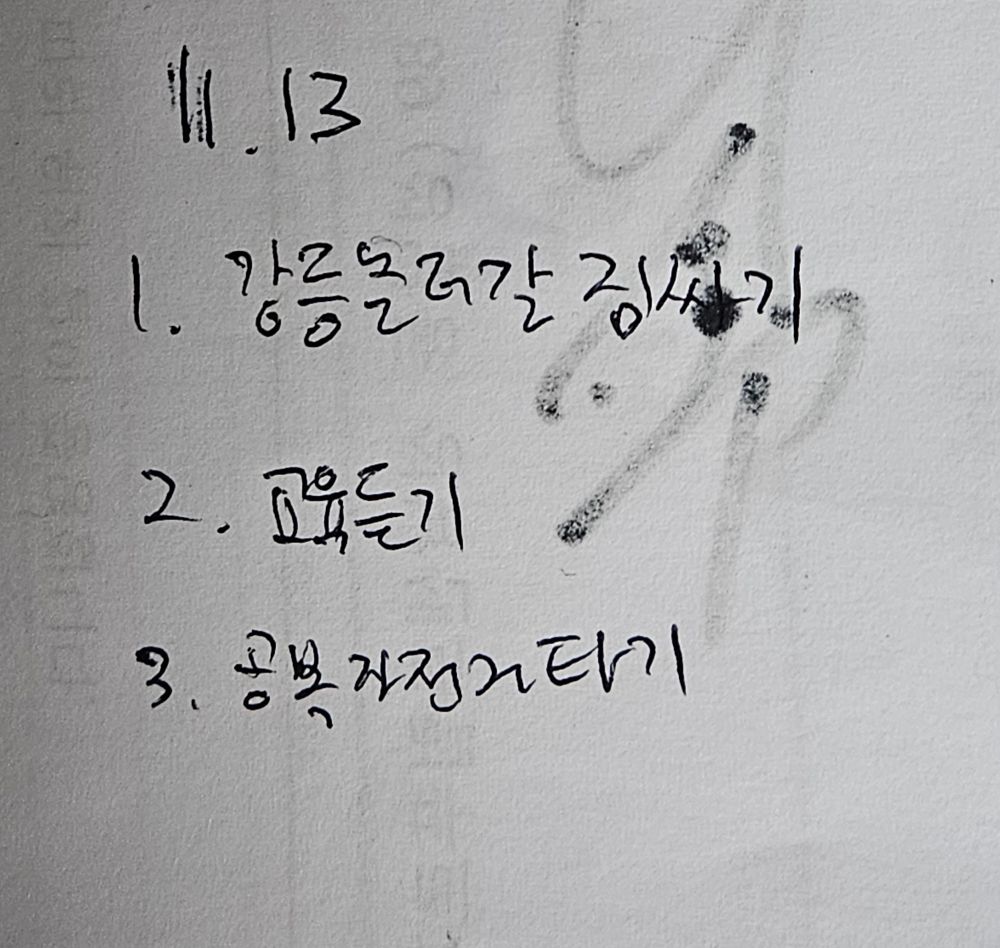 11.13
1. 강릉놀러갈 짐싸기
2. 교육듣기
3. 공복 자전거타기